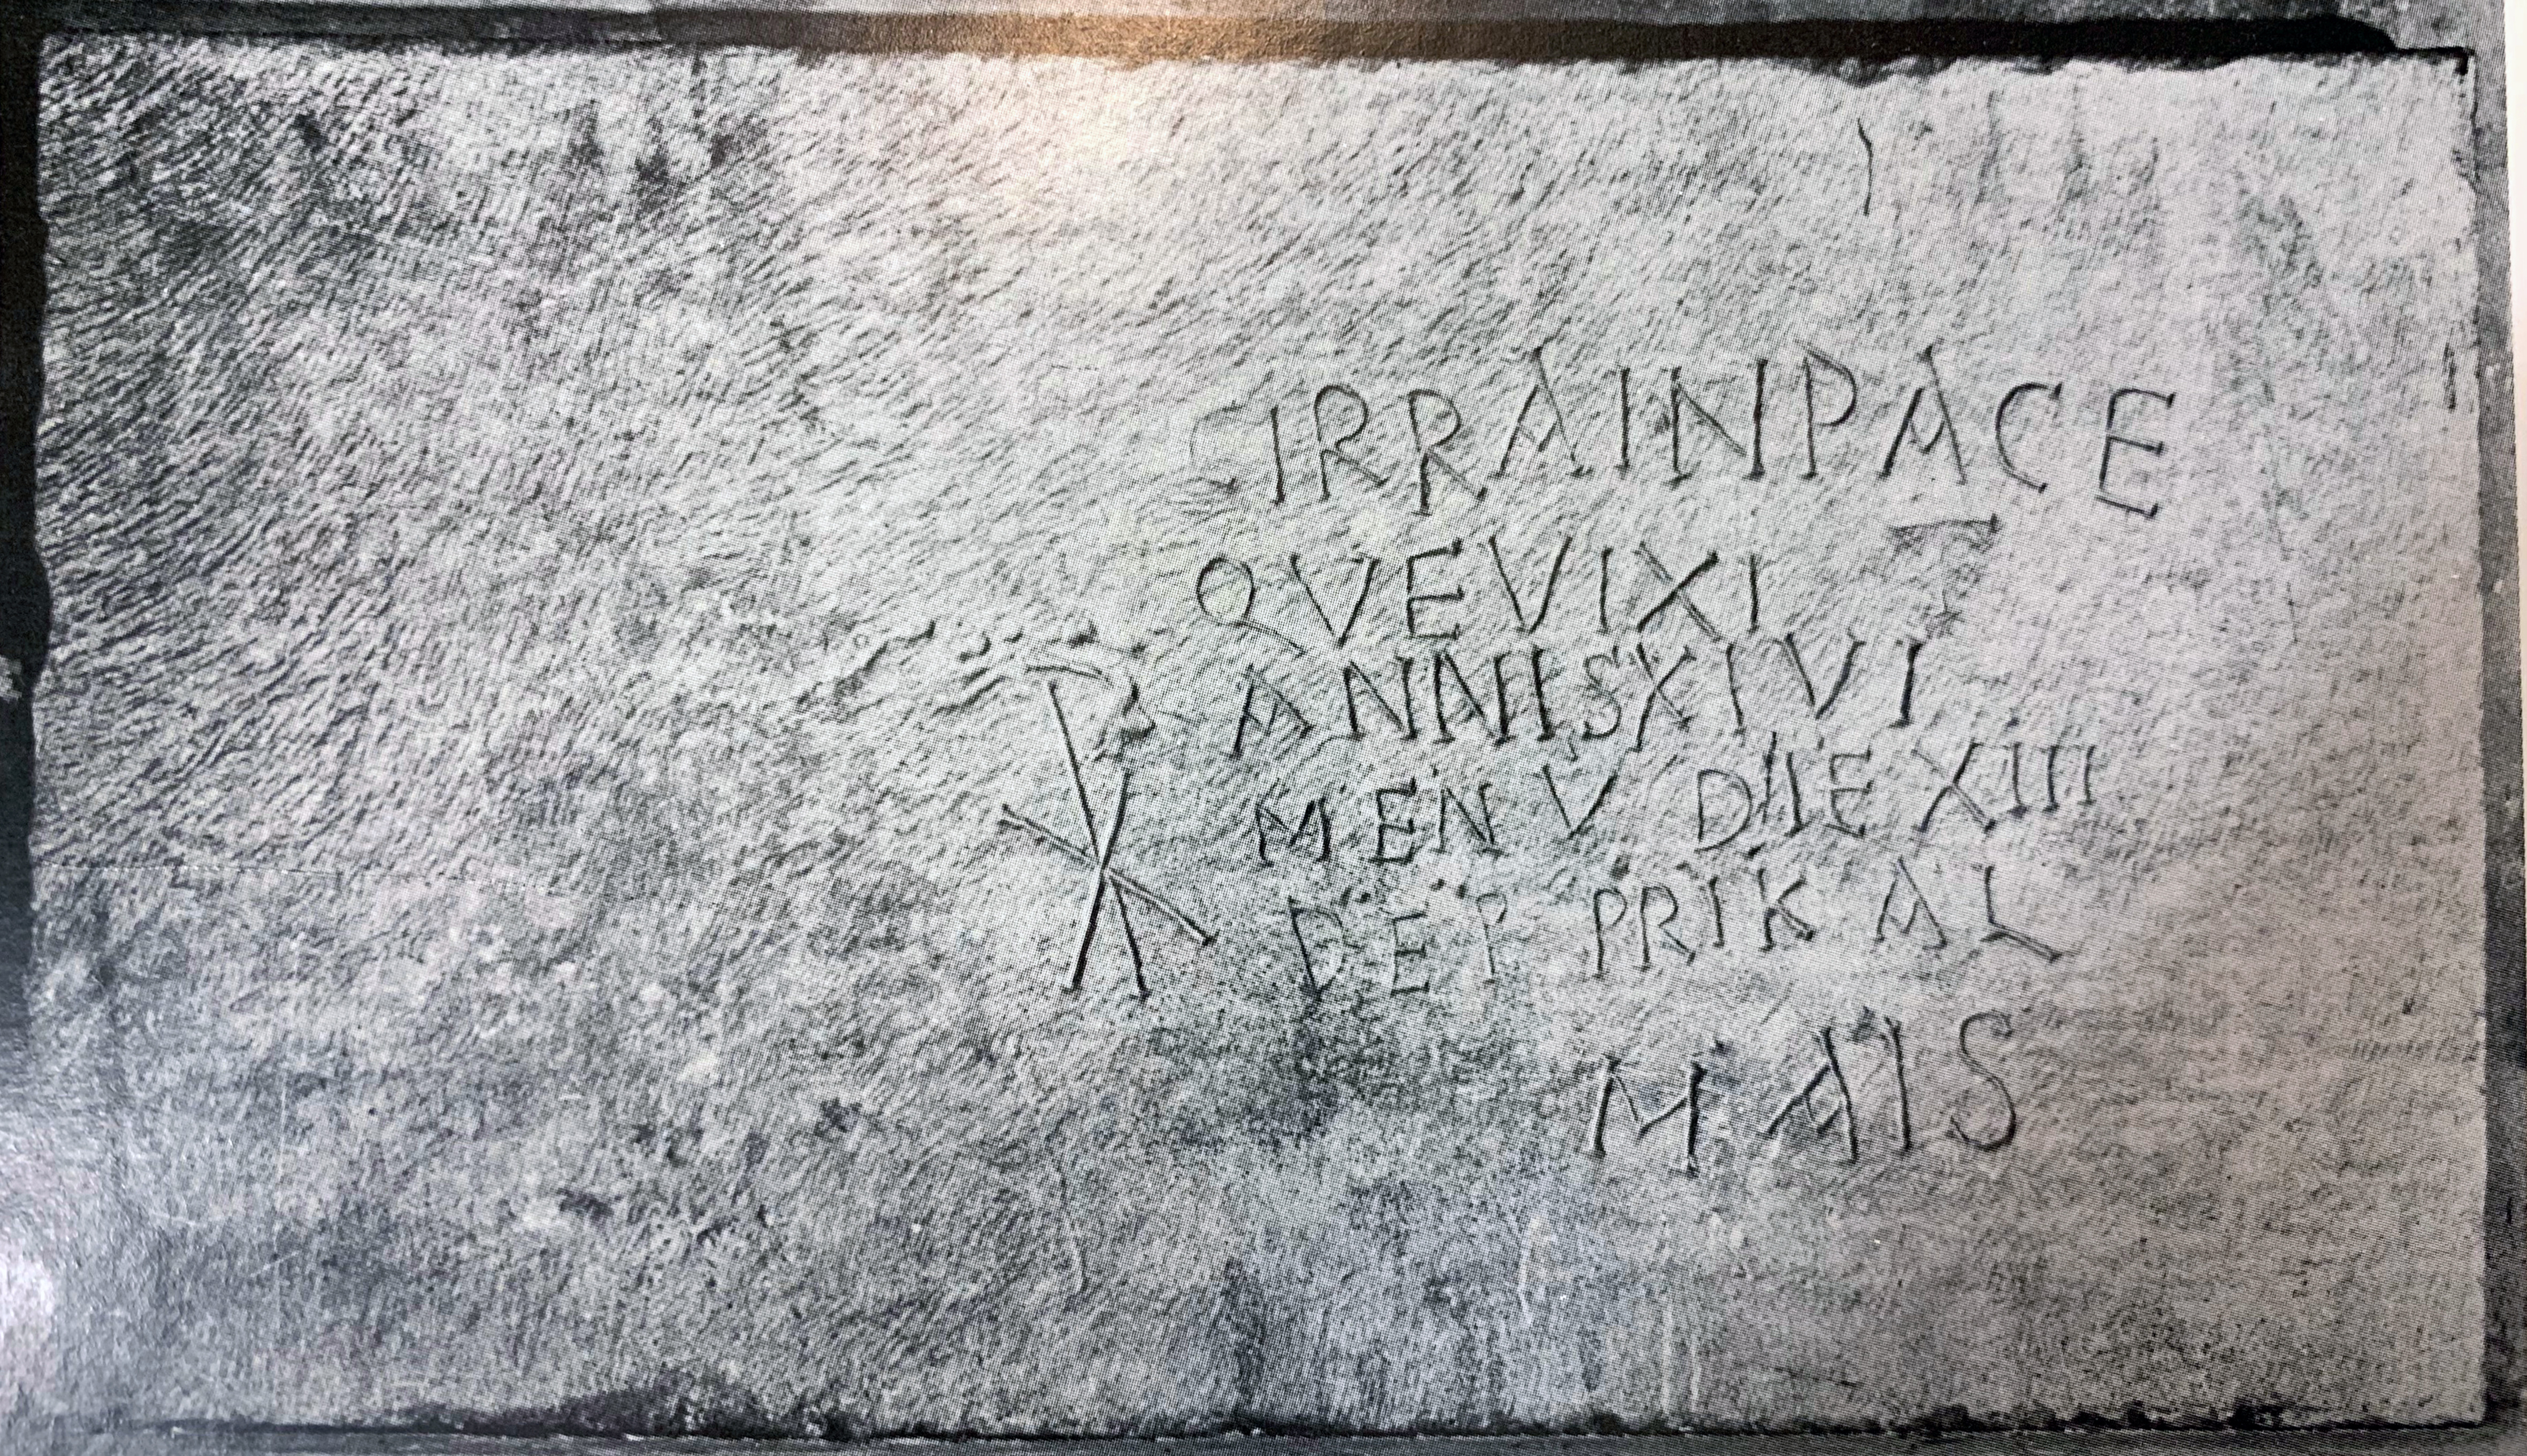 IRRAINPACE
QVEVIXIT
ANNISXIVI
MEN V DIE XIII
DEP PRIKAL
MAIS